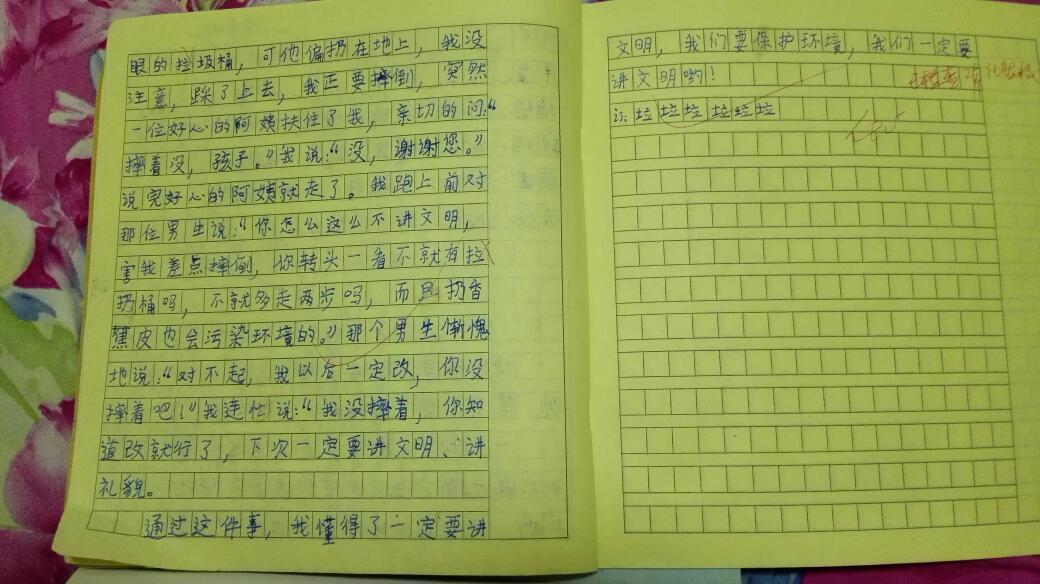 眼的垃圾桶，可他偏扔在地上，我没
注意，踩了上去，我正要摔倒，突然
一位好心的阿姨扶住了我，亲切的问：“
摔着没，孩子。”我说：“没，谢谢您。”
说完好心的阿姨就走了。我跑上前对
那位男生说：“你怎么这么不讲文明，
害我差点摔倒，你转头一看不就有拉
扔桶吗，不就多走两步吗，而且扔香
蕉皮也会污染环境的。”那个男生惭愧
地说：“对不起，我以后一定改，你没
摔着吧！”我连忙说：“我没摔着，你知
道改就行了，下次一定要讲文明、讲
礼貌。
通过这件事，我懂得了一定要讲
文明，我们要保护环境，我们一定要
讲文明哟！
订：垃垃垃垃垃垃